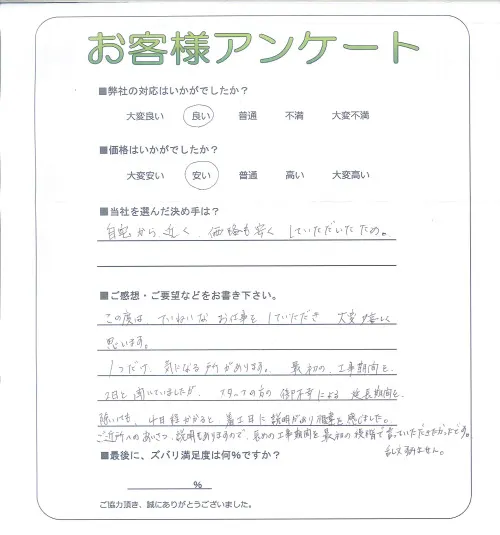 お客様アンケート
■弊社の対応はいかがでしたか？
大変良い 良い 普通 不満 大変不満
■価格はいかがでしたか？
大変安い 安い 普通 高い 大変高い
■当社を選んだ決め手は？
自宅から近く、価格も安くしていただいたため。
■ご感想・ご要望などをお書き下さい。
この度は、ていねいなお仕事をしていただき 大変嬉しく
思います。
1つだけ、気になる所があります。 最初の、工事期間を、
2日と聞いていましたが、スタッフの方の による 延長期間を、
除いても、4日程かかると 着工日に説明があり を感じました。
ご近所へのあいさつ、説明もありますので、長めの工事期間を最初の で言っていただきたかったです。
乱文すみません。
■最後に、ズバリ満足度は何%ですか？
%
ご協力頂き、誠にありがとうございました。